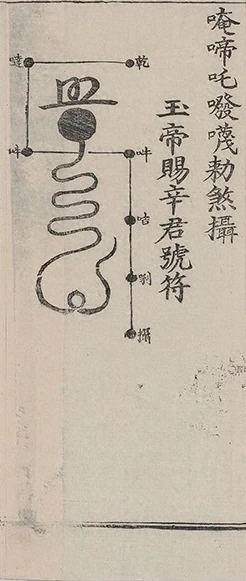 唵啼吒㗶噧勅煞攝
玉帝賜辛君號符
乾
吽
咭
唎
攝
噠
吽